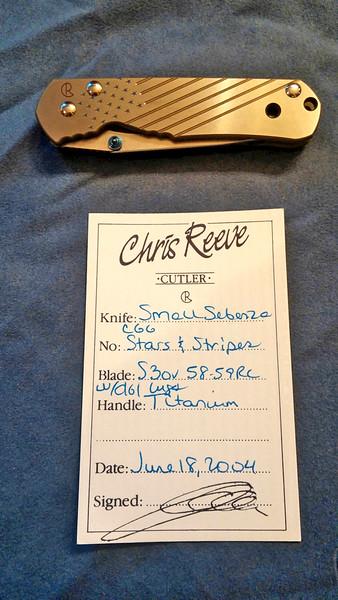 Chris Reeve
·CUTLER·
Knife: Small Sebenza
CGG
No: Stars & Stripes
Blade: S30V 58-59RC
w/dbl lugs
Handle: Titanium
Date: June 18, 2004
Signed: